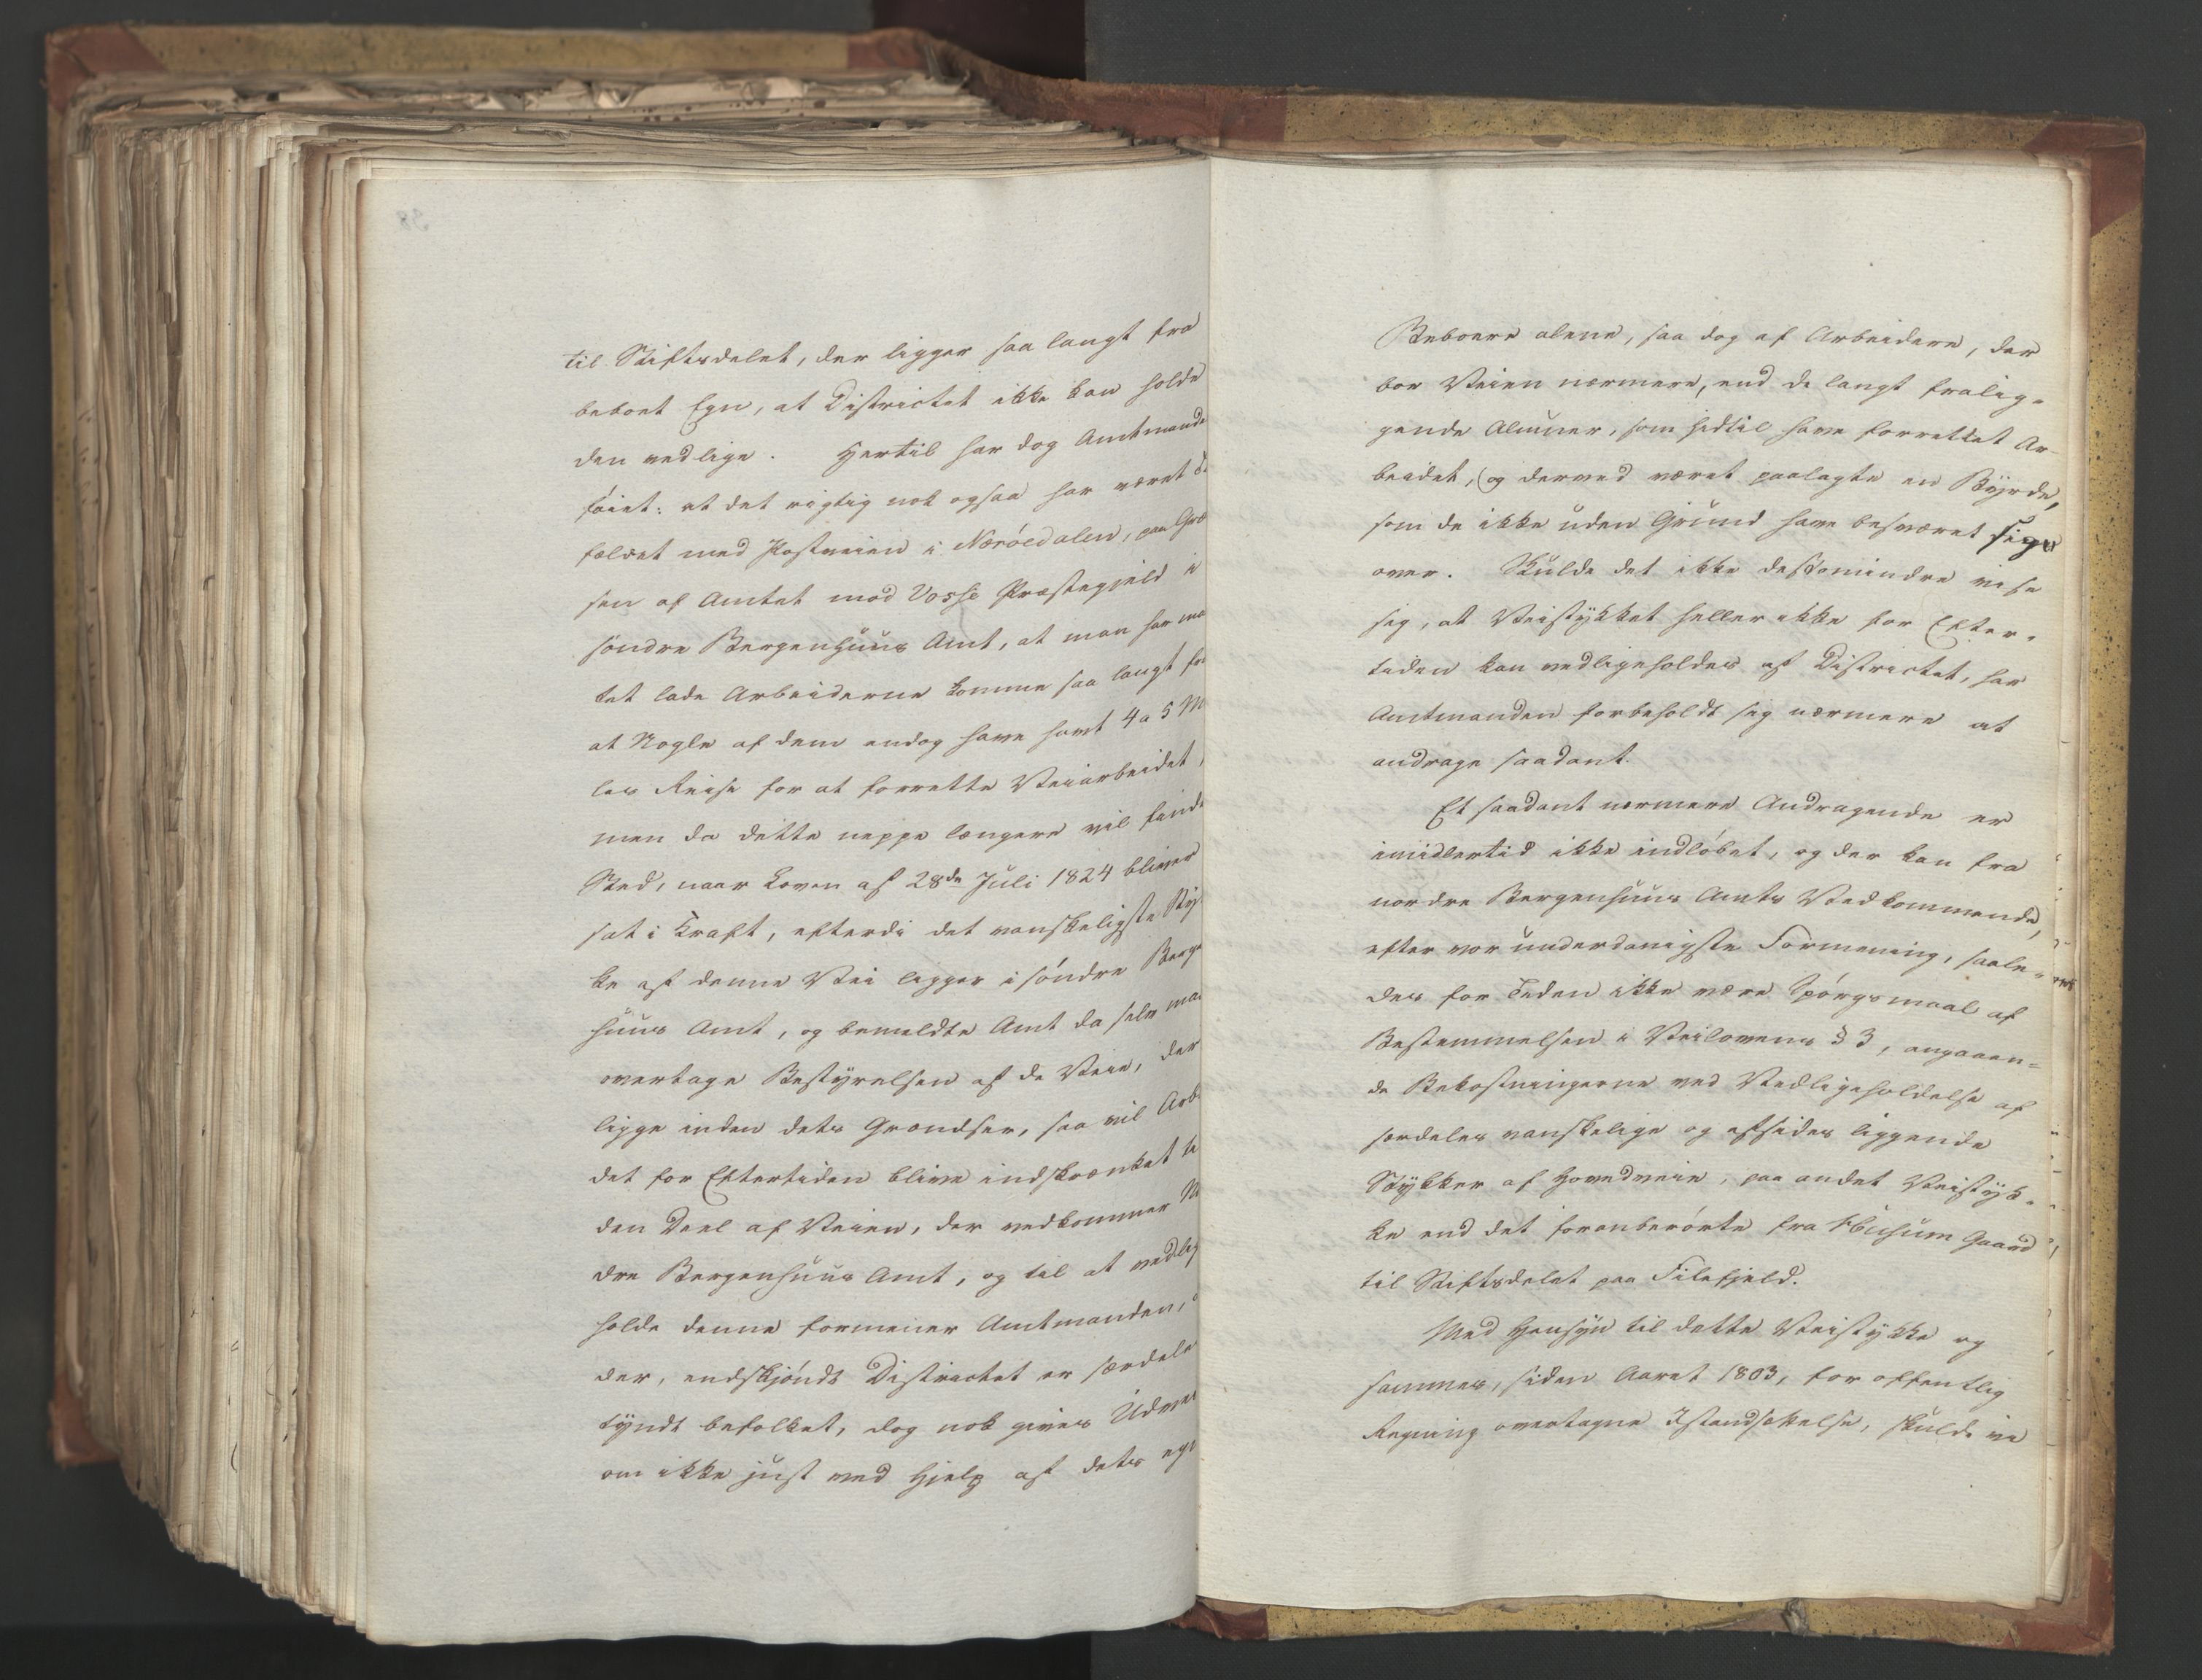 til Stiftsdelet, der ligger saa langt fra
beboet Egn, at Districtet ikke kan holde
den vedlige. Hertil har dog Amtmanden
föiet: at det rigtig nok ogsaa har været
fældet med Postveien i Nærøedalen, paa Græ
sen af Amtet mod Vosse Præstegjeld i
söndre Bergenhuus Amt, at man har maa
tet lade Arbeiderne komme saa langt fra
at Nogle af dem endog have havt 4 a 5 Mi
les Reise for at forrette Veiarbeidet,
men da dette neppe længere vil finde
Sted, naar Loven af 28de Juli 1824 bliver
sat i Kraft, efterdi det vanskeligste Styk
ke af denne Vei ligger i söndre Berge
huus Amt, og bemeldte Amt da selv maa
overtage Bestyrelsen af de Veie, der
ligge inden dets Grændser, saa vil Arbei
det for Eftertiden blive indskrænket til
den Deel af Veien, der vedkommer No
dre Bergenhuus Amt, og til at vedlige
holde denne formener Amtmanden, at
der, endskjöndt Districtet er særdeles
tyndt befolket, dog nok gives Udveie
om ikke just ved Hjelp af dets egne
Beboere alene, saa dog af Arbeidere, der
boe Veien nærmere, end de langt fralig-
gende Almuer, som hidtil have forrettet Ar-
beidet, (og derved været paalagte en Byrde,
som de ikke uden Grund have besværet sig
over. Skulde det ikke destomindre vise
sig, at Veistykket heller ikke for Efter-
tiden kan vedligeholdes af Districtet, har
Amtmanden forbeholdt sig nærmere at
andrage saadant.
Et saadant nærmere Andragende er
imidlertid ikke indlöbet, og der kan fra
nordre Bergenhuus Amts Vedkommende,
efter vor underdanigste Formening, saale-
des for Tiden ikke være Spörgsmaal af
Bestemmelsen i Veilovens § 3, angaaen-
de Bekostningerne ved Vedligeholdelse af
særdeles vanskelige og afsides liggende
Stykker af Hovedveie, paa andet Veistyk-
ke end det foranberörte fra Husum Gaard
til Stiftsdelet paa Filefjeld.
Med Hensyn til dette Veistykke og
sammes, siden Aaret 1803, for offentlig
Regning overtagne Istandsættelse, skulde vi